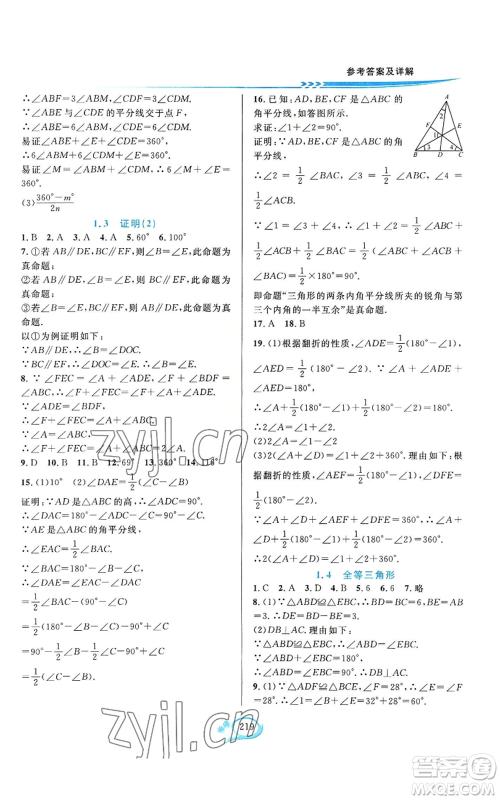 参考答案及详解
∴∠ABF=3∠ABM,∠CDF=3∠CDM.
∵∠ABE与∠CDE的平分线交于点F,
∴∠ABE=6∠ABM,∠CDE=6∠CDM.
易证∠ABE+∠E+∠CDE=360°,
∴6∠ABM+6∠CDM+∠E=360°.
易证∠M=∠ABM+∠CDM,∴6∠M+∠E=
360°.
(3)\frac{360°-m°}{2n}
1.3 证明(2)
1. B 2. A 3. A 4. A 5. 60° 6. 100°
7. ①若AB∥DE,BC∥EF,则∠B=∠E,此命题为
真命题;
②若AB∥DE,∠B=∠E,则BC∥EF,此命题为
真命题;
③若∠B=∠E,BC∥EF,则AB∥DE,此命题为
真命题.
以①为例证明如下:
∵AB∥DE,∴∠B=∠DOC.
∵BC∥EF,∴∠DOC=∠E,∴∠B=∠E.
8. ∵∠FEC=∠A+∠ADE,∠F+∠BDF=∠ABC,
∴∠F+∠FEC=∠F+∠A+∠ADE.
∵∠ADE=∠BDF,
∴∠F+∠FEC=∠A+∠ABC.
∵∠A=∠ABC,
∴∠F+∠FEC=∠A+∠ABC=2∠A.
9. D 10. B 11. B 12. 69° 13. 360° 14. 118°
15. (1)10° (2)∠DAE=\frac{1}{2}(∠C-∠B)
证明:∵AD是△ABC的高,∴∠ADC=90°,
∴∠DAC=180°-∠ADC-∠C=90°-∠C.
∵AE是△ABC的角平分线,
∴∠EAC=\frac{1}{2}∠BAC.
∵∠BAC=180°-∠B-∠C,
∴∠DAE=∠EAC-∠DAC
=\frac{1}{2}∠BAC-(90°-∠C)
=\frac{1}{2}(180°-∠B-∠C)-90°+∠C
=90°-\frac{1}{2}∠B-\frac{1}{2}∠C-90°+∠C
=\frac{1}{2}(∠C-∠B).
16. 已知:AD,BE,CF是△ABC的
角平分线,如答图所示.
求证:∠1+∠2+∠3=90°.
证明:∵AD,BE,CF是△ABC的
角平分线,
∴∠1=\frac{1}{2}∠ABC,
∠2=\frac{1}{2}∠BAC,∠3=\frac{1}{2}∠ACB.
∵∠ABC+∠BAC+∠ACB=180°,
∴∠1+∠2+∠3
=\frac{1}{2}∠ABC+\frac{1}{2}∠BAC+\frac{1}{2}∠ACB
=\frac{1}{2}(∠ABC+∠BAC+∠ACB)
=\frac{1}{2}×180°=90°.
即命题“三角形的两条内角平分线所夹的锐角与
第三个内角的一半互余”是真命题.
17. A 18. B
19. (1)根据翻折的性质,∠ADE=\frac{1}{2}(180°-∠1),
∠AED=\frac{1}{2}(180°-∠2).
∵∠A+∠ADE+∠AED=180°,
∴∠A+\frac{1}{2}(180°-∠1)+\frac{1}{2}(180°-∠2)=180°,
∴2∠A=∠1+∠2.
(2)2(∠A+∠D)=∠1+∠2+360°.理由如下:根
据翻折的性质,∠AEF=\frac{1}{2}(180°-∠1),∠DFE=
\frac{1}{2}(180°-∠2).
∵∠A+∠D+∠AEF+∠DFE=360°,
∴∠A+∠D+\frac{1}{2}(180°-∠1)+\frac{1}{2}(180°-∠2)
=360°,
∴2(∠A+∠D)=∠1+∠2+360°.
1.4 全等三角形
1. C 2. A 3. A 4. D 5. 6 6. 6 7. 略
8. (1)∵△ABD≌△EBC,∴BD=BC=3.
(2)DB⊥AC.理由如下:
∵△ABD≌△EBC,∴∠ABD=∠EBC.
∵∠ABD+∠EBC=180°,
∴∠ABD=∠EBC=90°,∴DB⊥AC.
9. (1)∵∠A=28°,∴∠F=∠A=28°.
219
zyjl.cn
zyjl.cn
答案圈
MXQE.COM